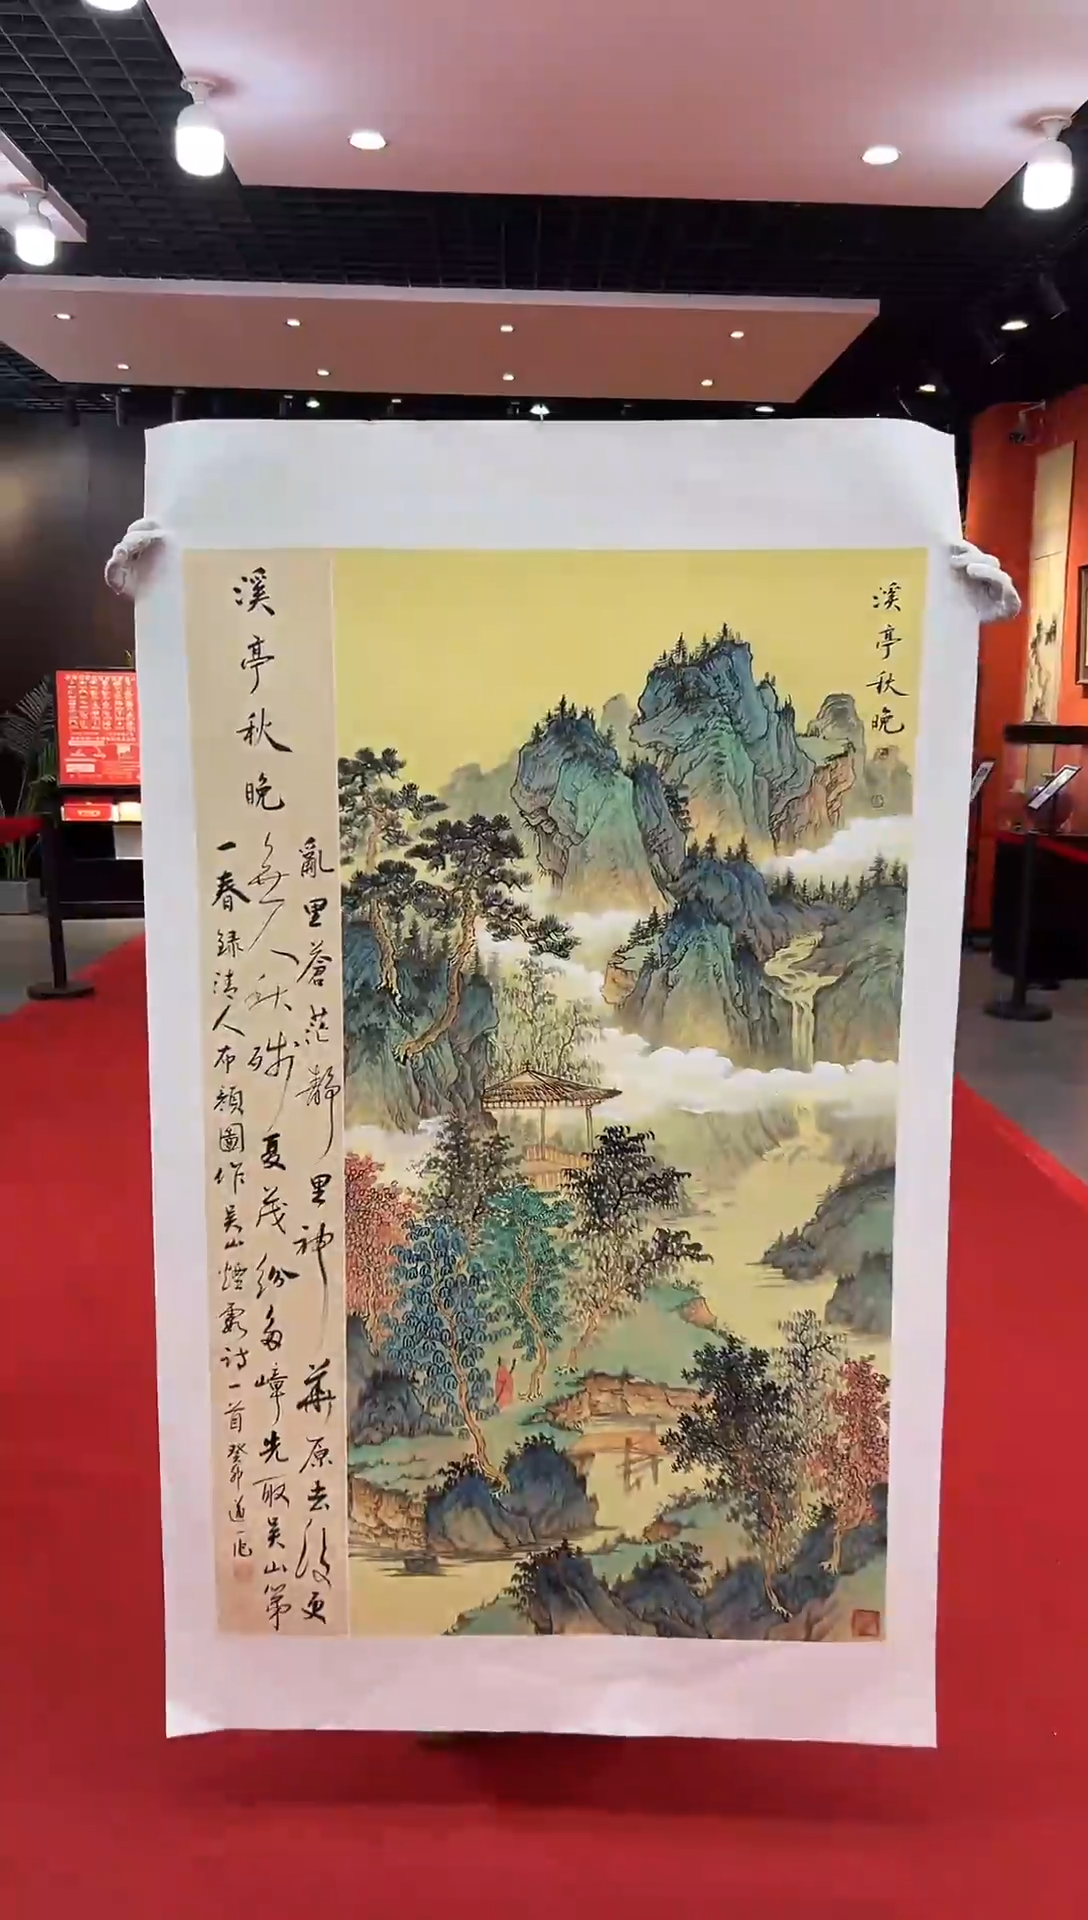 溪亭秋晚
溪亭秋晚
亂里蒼茫靜里神 華原去後更
無人秋殘夏茂紛多嶂先取吳山第
一春錄清人布顏圖作吳山煙霞詩一首癸卯道一